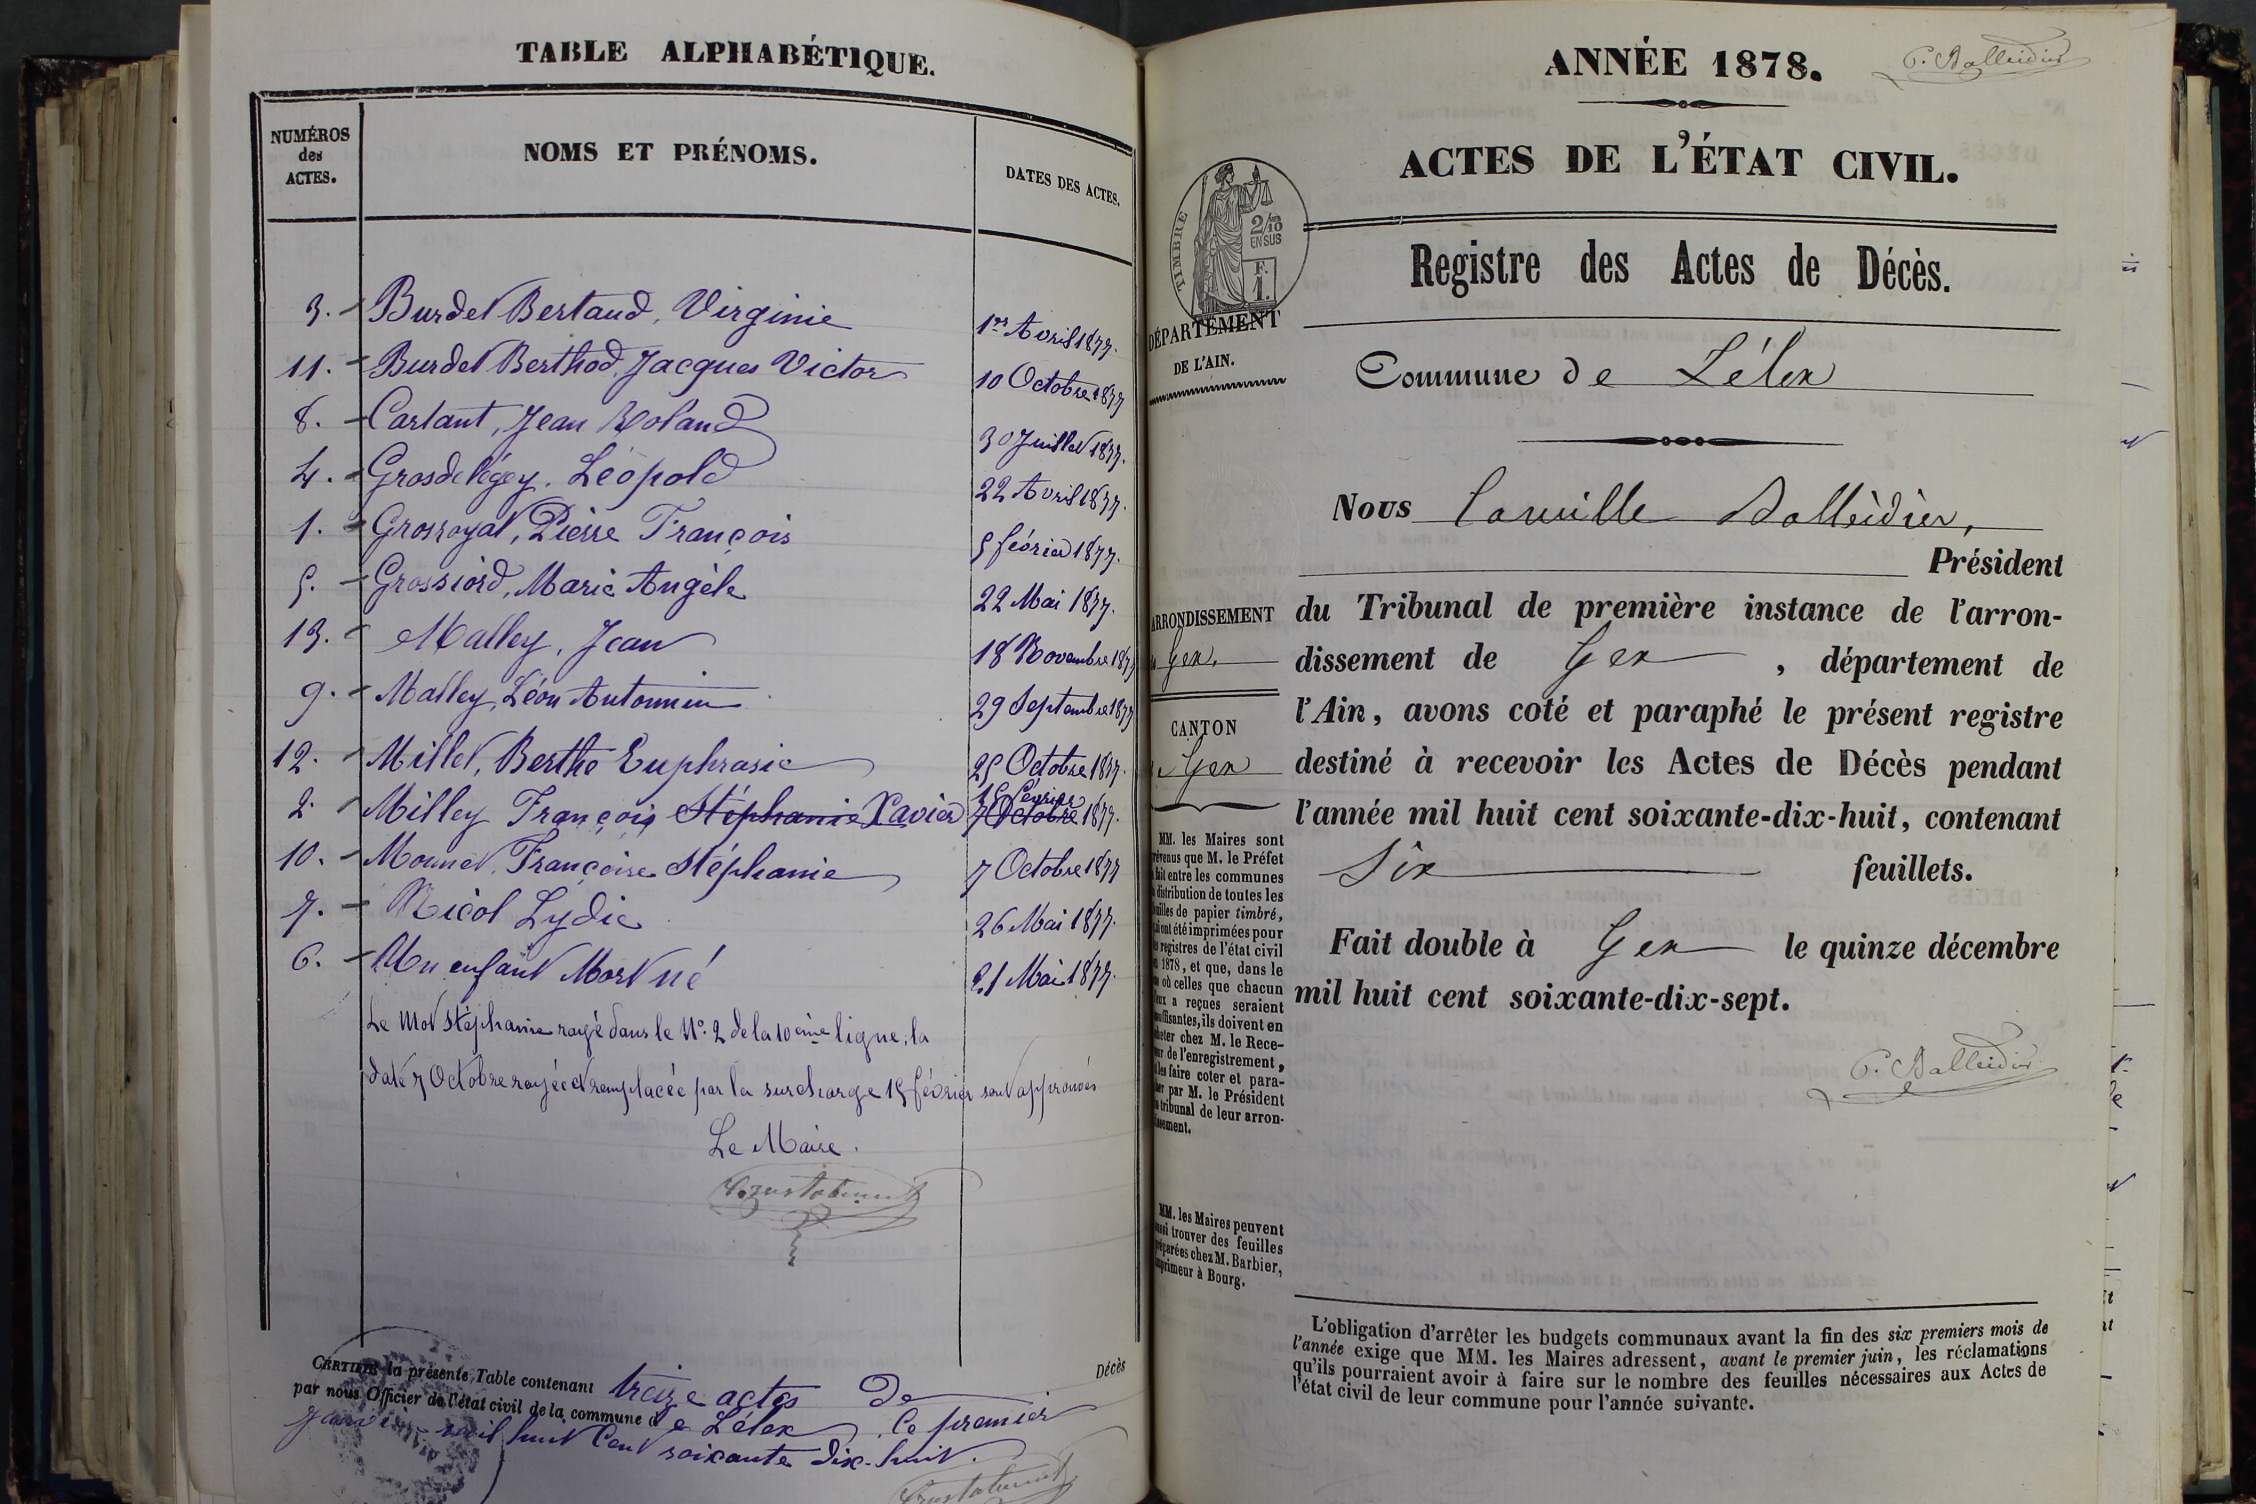 TABLE ALPHABÉTIQUE.
NUMÉROS
des
ACTES.
NOMS ET PRÉNOMS.
DATES DES ACTES.
3. Burdet Bertaud, Virginie 1er Avril 1877.
11. Burdet Berthod, Jacques Victor 10 Octobre 1877
8. Carlant, Jean Roland 30 Juillet 1877.
4. Grosdelégey, Léopold 22 Avril 1877.
1. Grosroyat, Pierre François 5 février 1877.
5. Grossiord, Marie Angèle 22 Mai 1877.
13. Malley, Jean 18 Novembre 1877
9. Malley, Léon Antonnin 29 Septembre 1877
12. Millet, Berthe Euphrasie 25 Octobre 1877.
2. Milley François Stéphanie Xavier 7 Octobre 15 février 1877.
10. Mounet, Françoise Stéphanie 7 Octobre 1877
7. Nicol Lydie 26 Mai 1877.
6. Un enfant Mort né 21 Mai 1877.
Le mot Stéphanie rayé dans le No. 2 de la 10ème ligne, la
date 7 Octobre rayée et remplacée par la surcharge 15 février sont approuvés
Le Maire.
Décès
CERTIFIE la présente Table contenant treize actes de
par nous Officier de l'état civil de la commune de Lélex, le premier
Janvier mil huit Cent soixante dix-huit.
ANNÉE 1878.
C. Balleidier
ACTES DE L'ÉTAT CIVIL.
TIMBRE
2/10
EN SUS
F.
1.
Registre des Actes de Décès.
DÉPARTEMENT
DE L'AIN.
Commune de Lélex
Nous Camille Balleidier,
Président
ARRONDISSEMENT
Gex.
du Tribunal de première instance de l'arron-
dissement de Gex, département de
l'Ain, avons coté et paraphé le présent registre
CANTON
Gex
destiné à recevoir les Actes de Décès pendant
l'année mil huit cent soixante-dix-huit, contenant
Six feuillets.
Fait double à Gex le quinze décembre
mil huit cent soixante-dix-sept.
C. Balleidier
MM. les Maires sont
prévenus que M. le Préfet
fait entre les communes
distribution de toutes les
feuilles de papier timbré,
qui ont été imprimées pour
registres de l'état civil
1878, et que, dans le
où celles que chacun
a reçues seraient
insuffisantes, ils doivent en
acheter chez M. le Rece-
de l'enregistrement,
les faire coter et para-
par M. le Président
tribunal de leur arron-
dissement.
MM. les Maires peuvent
aussi trouver des feuilles
préparées chez M. Barbier,
imprimeur à Bourg.
L'obligation d'arrêter les budgets communaux avant la fin des six premiers mois de
l'année exige que MM. les Maires adressent, avant le premier juin, les réclamations
qu'ils pourraient avoir à faire sur le nombre des feuilles nécessaires aux Actes de
l'état civil de leur commune pour l'année suivante.